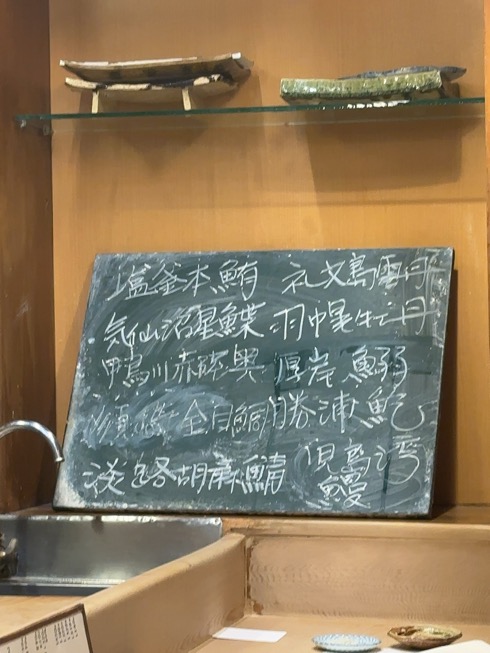 塩釜本鮪 礼文島雲丹
気仙沼星鰈 羽幌牡丹
鴨川赤陸奥 厚岸鰯
須 金目鯛 勝浦鮑
淡路胡麻鯖 児島湾
鰻